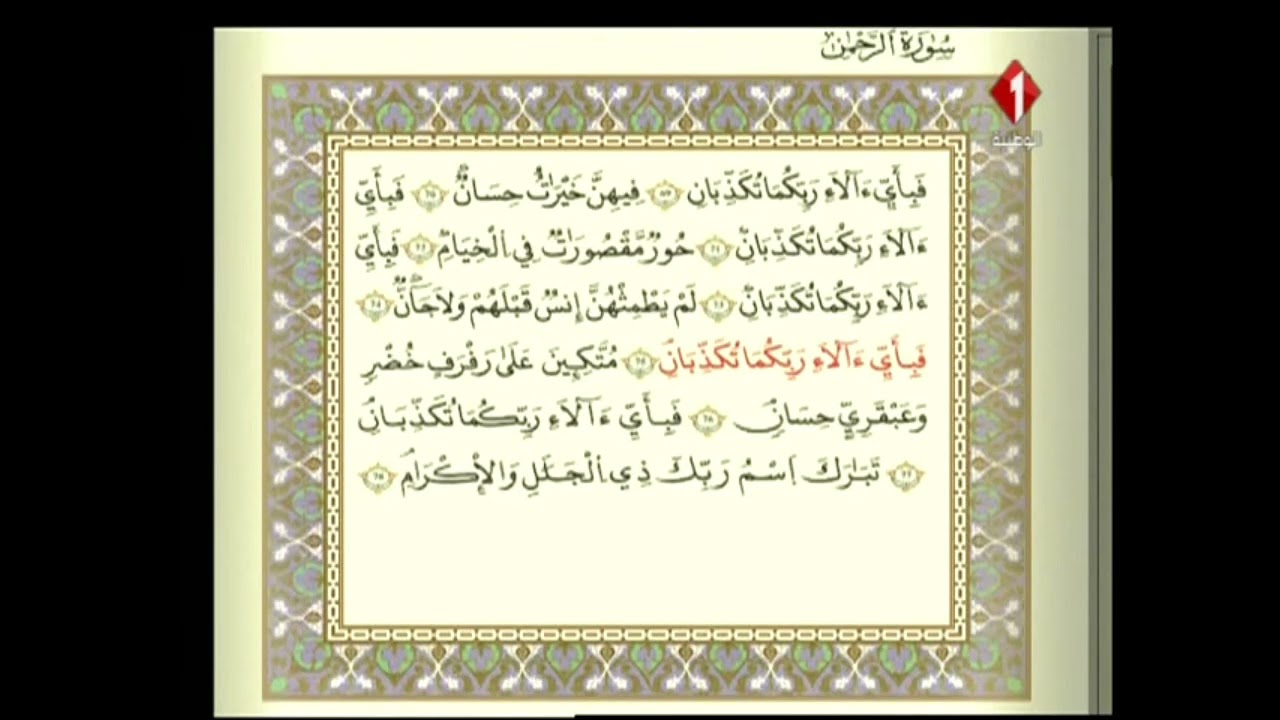 سُورَةُ الرَّحْمَٰن
1
الوطنية
فَبِأَيِّ ءَالَآءِ رَبِّكُمَا تُكَذِّبَانِ فِيهِنَّ خَيْرَٰتٌ حِسَانٌ فَبِأَيِّ
ءَالَآءِ رَبِّكُمَا تُكَذِّبَانِ حُورٌ مَّقْصُورَٰتٌ فِي الْخِيَامِ فَبِأَيِّ
ءَالَآءِ رَبِّكُمَا تُكَذِّبَانِ لَمْ يَطْمِثْهُنَّ إِنسٌ قَبْلَهُمْ وَلَا جَآنٌّ
فَبِأَيِّ ءَالَآءِ رَبِّكُمَا تُكَذِّبَانِ مُتَّكِـِٕينَ عَلَىٰ رَفْرَفٍ خُضْرٍ
وَعَبْقَرِيٍّ حِسَانٍ فَبِأَيِّ ءَالَآءِ رَبِّكُمَا تُكَذِّبَانِ
تَبَٰرَكَ اَسْمُ رَبِّكَ ذِي الْجَلَٰلِ وَالْإِكْرَامِ